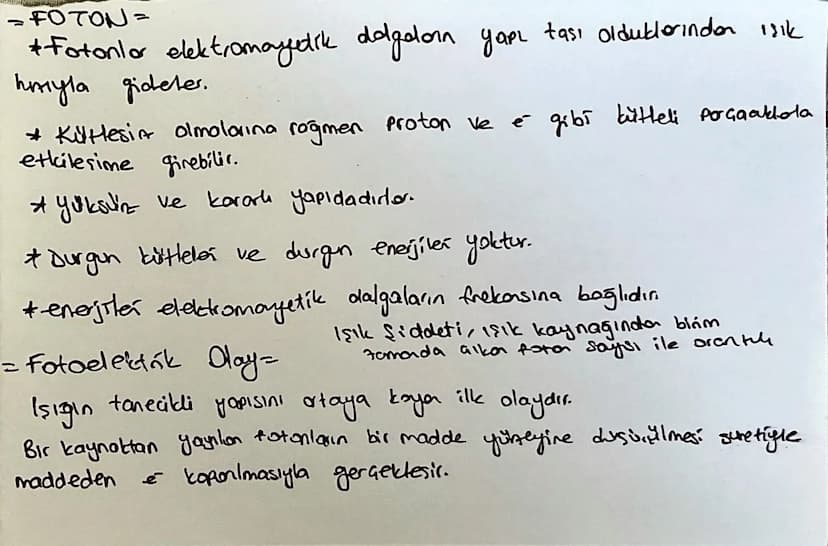 = FOTON =
* Fotonlar elektromanyetik dalgaların yapı taşı olduklarından ışık
hızıyla giderler.
* Kütlesiz olmalarına rağmen proton ve e⁻ gibi kütleli parçacıklarla
etkileşime girebilir.
* Yüksüz ve kararlı yapıdadırlar.
* Durgun kütleleri ve durgun enerjileri yoktur.
* enerjileri elektromanyetik dalgaların frekansına bağlıdır.
Işık şiddeti, ışık kaynağından birim
zamanda çıkan foton sayısı ile orantılı
= Fotoelektrik Olay =
Işığın tanecikli yapısını ortaya koyan ilk olaydır.
Bir kaynaktan yayılan fotonların bir madde yüzeyine düşürülmesi suretiyle
maddeden e⁻ koparılmasıyla gerçekleşir.